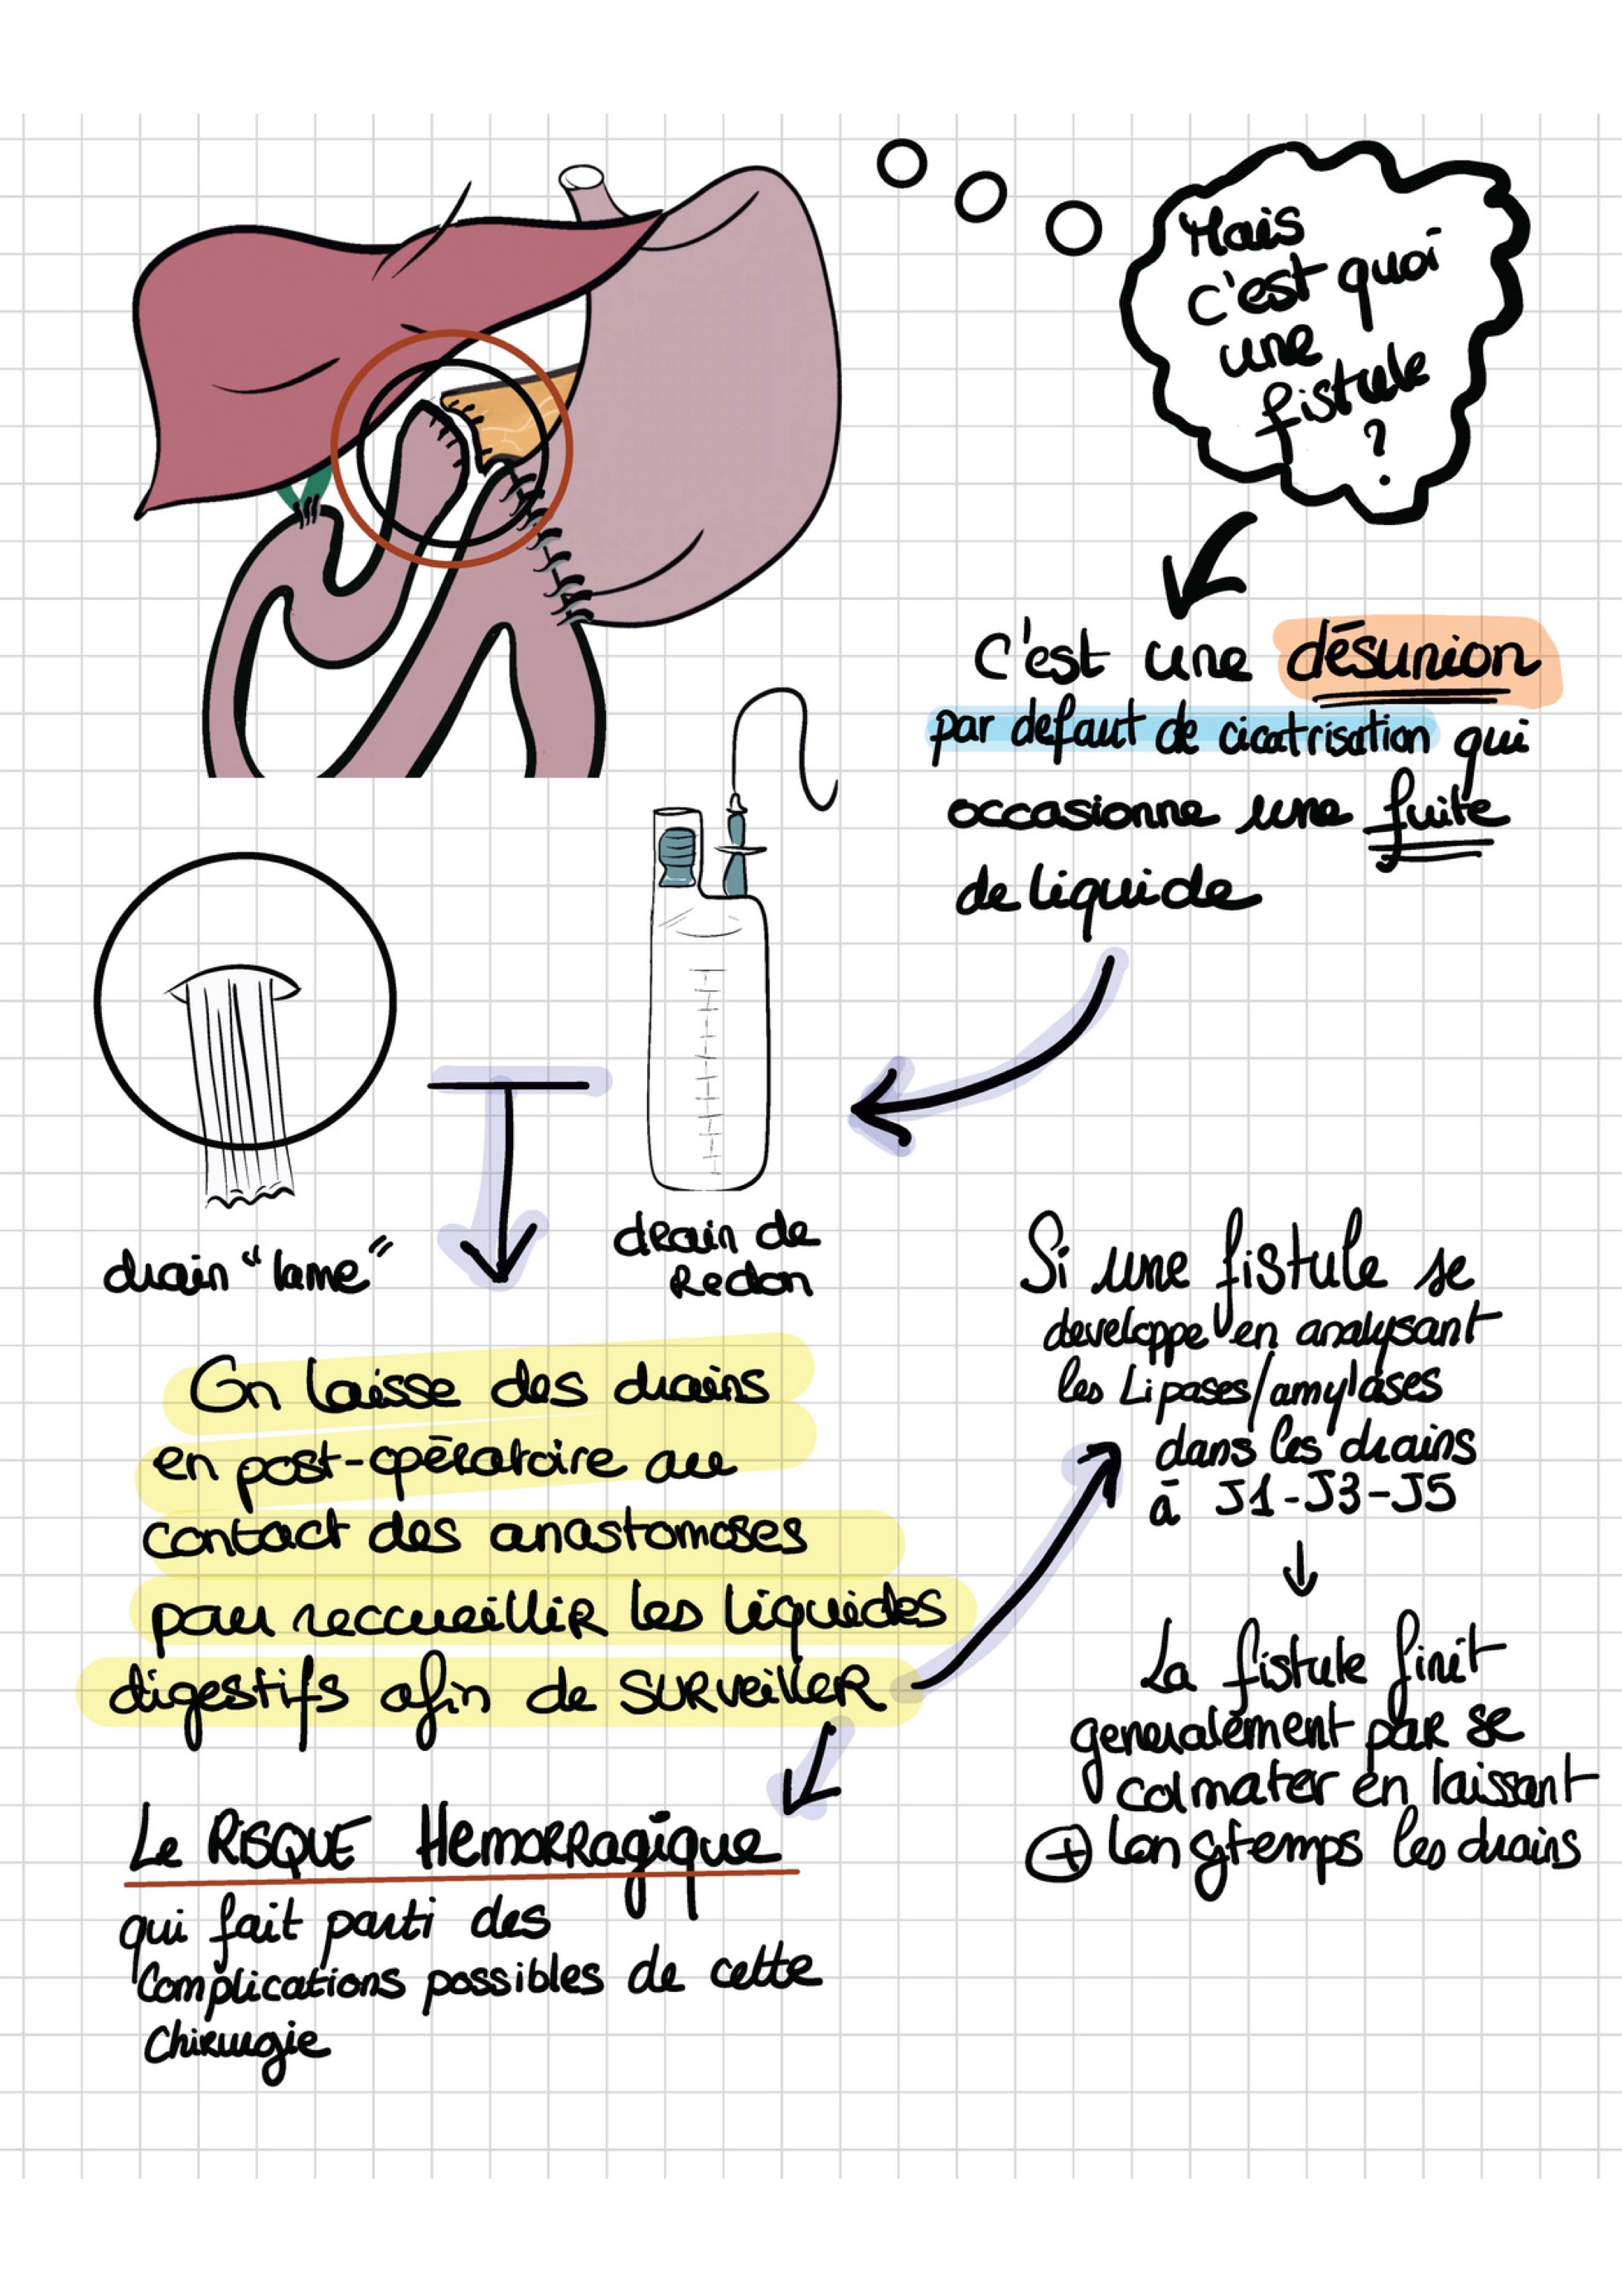 Mais
c'est quoi
une
fistule
?
C'est une désunion
par defaut de cicatrisation qui
occasionne une fuite
de liquide
drain "lame"
drain de
Redon
On laisse des drains
en post-opératoire au
contact des anastomoses
pour reccueillir les liquides
digestifs afin de SURVEILLER
Le RISQUE Hemorragique
qui fait parti des
complications possibles de cette
chirurgie
Si une fistule se
developpe en analysant
les Lipases/amylases
dans les drains
à J1-J3-J5
La fistule finit
generalement par se
colmater en laissant
+ longtemps les drains